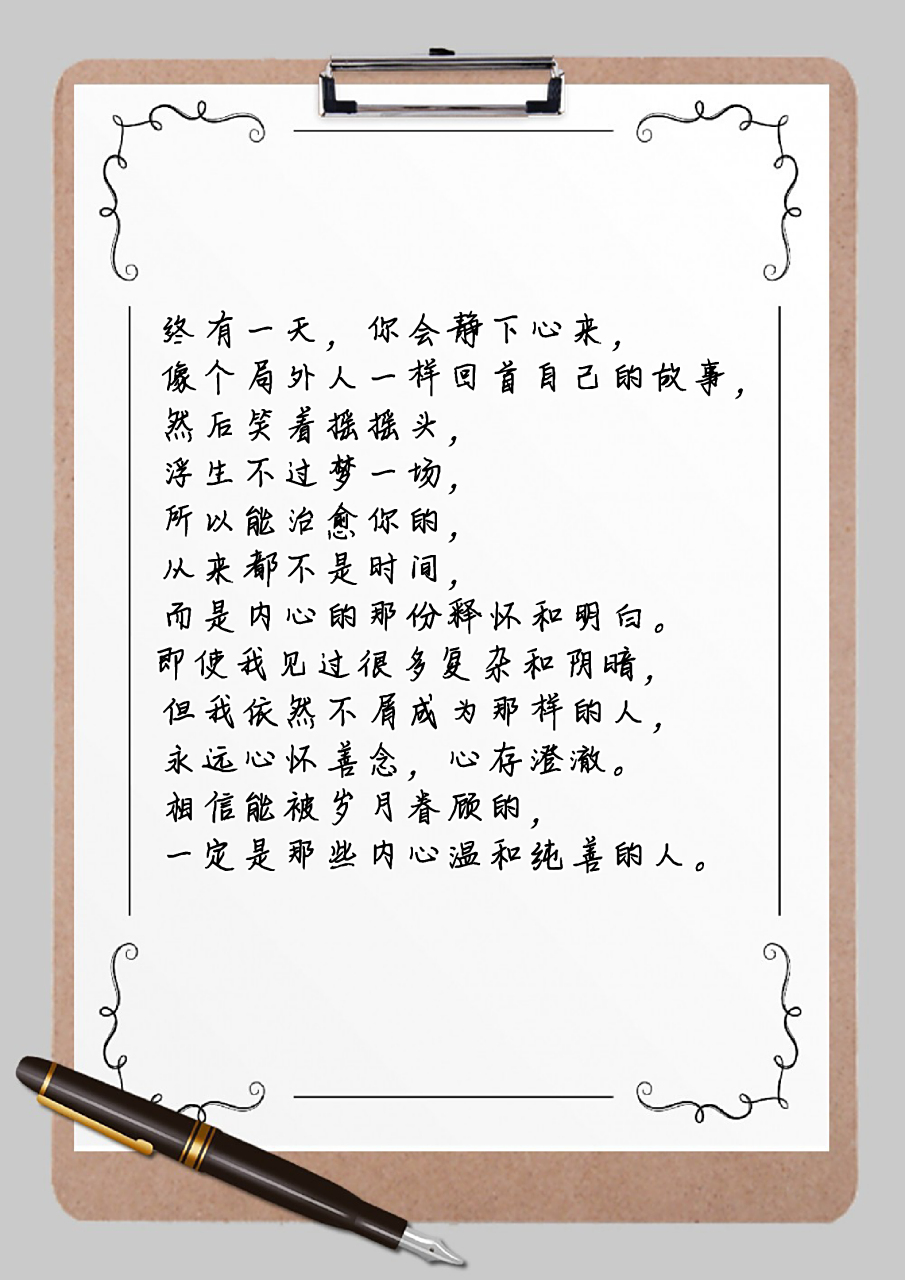 终有一天，你会静下心来，
像个局外人一样回首自己的故事，
然后笑着摇摇头，
浮生不过梦一场，
所以能治愈你的，
从来都不是时间，
而是内心的那份释怀和明白。
即使我见过很多复杂和阴暗，
但我依然不屑成为那样的人，
永远心怀善念，心存澄澈。
相信能被岁月眷顾的，
一定是那些内心温和纯善的人。